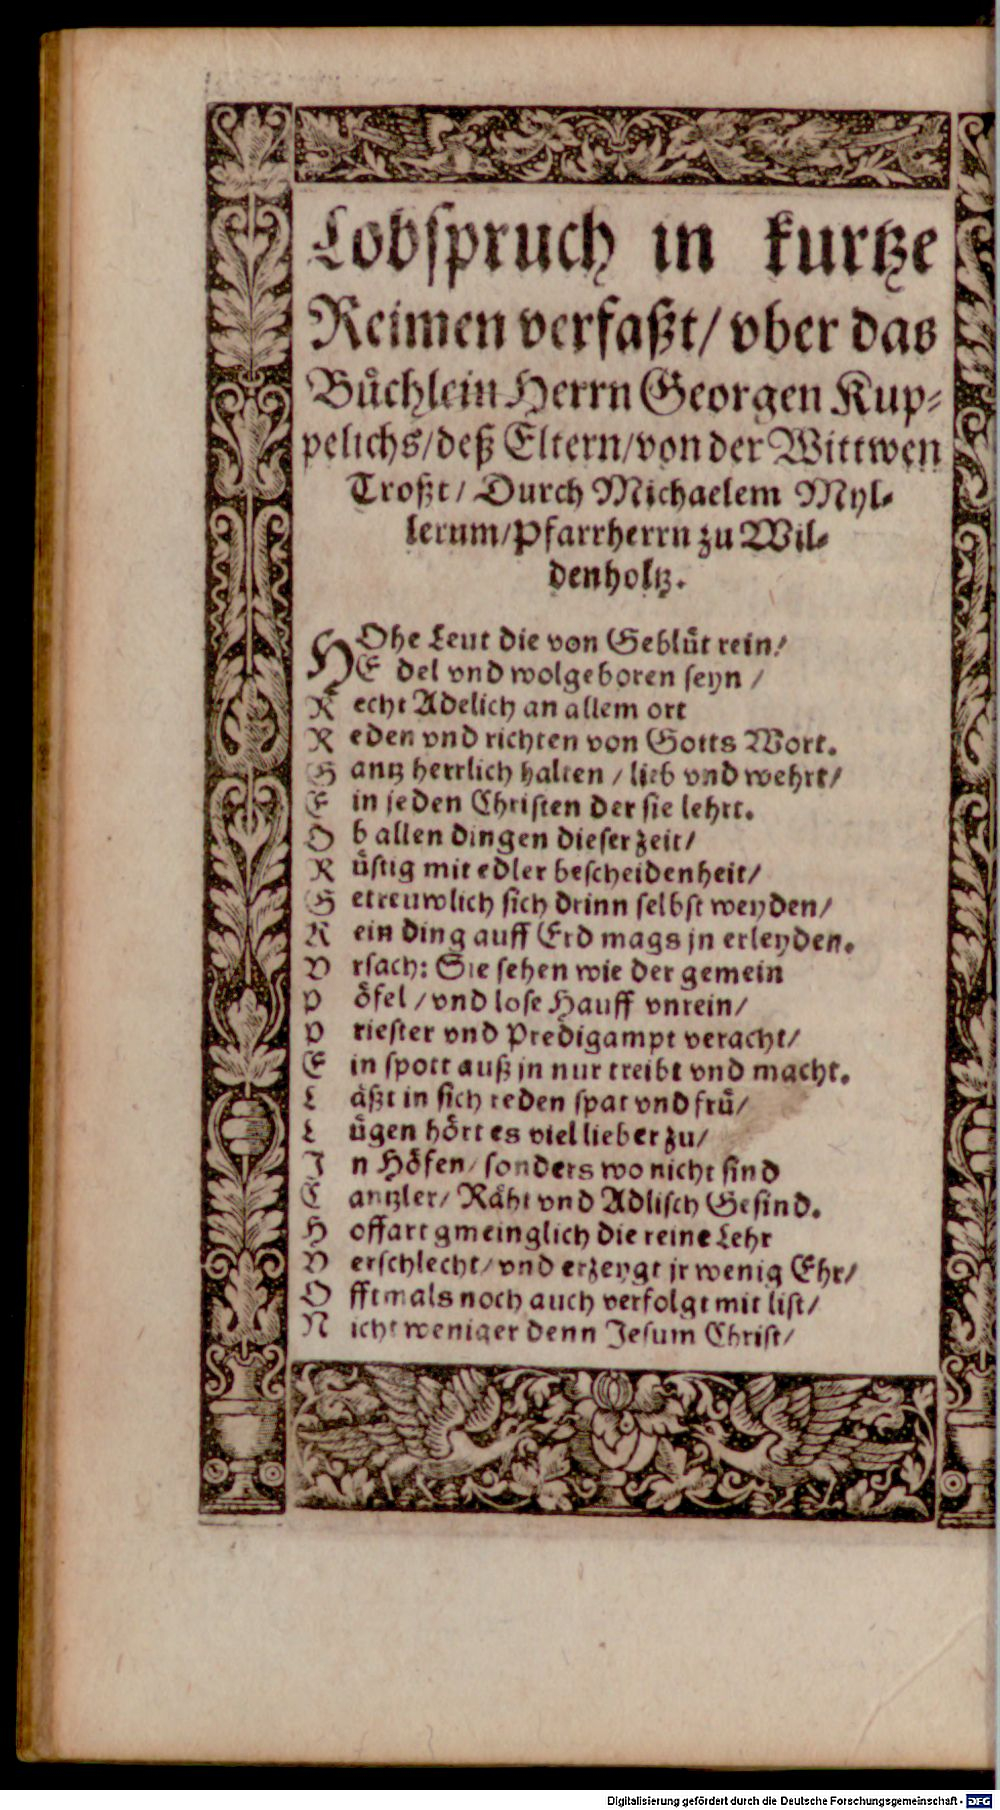 Lobspruch in kurtze
Reimen verfaßt/ vber das
Buͤchlein Herrn Georgen Kup⸗
pelichs/ deß Eltern/ von der Wittwen
Troßt/ Durch Michaelem Myl⸗
lerum/ Pfarrherrn zu Wil⸗
denholtz.
HOhe Leut die von Gebluͤt rein/
E del vnd wolgeboren seyn /
R echt Adelich an allem ort
R eden vnd richten von Gotts Wort.
G antz herrlich halten / lieb vnd wehrt/
E in jeden Christen der sie lehrt.
O b allen dingen dieser zeit/
R uͤstig mit edler bescheidenheit/
G etreuwlich sich drinn selbst weyden/
K ein ding auff Erd mags jn erleyden.
V rsach: Sie sehen wie der gemein
P oͤfel / vnd lose Hauff vnrein/
P riester vnd Predigampt veracht/
E in spott auß jn nur treibt vnd macht.
L aͤßt in sich reden spat vnd fruͤ/
L uͤgen hoͤrt es viel lieber zu/
J n Hoͤfen/ sonders wo nicht sind
C antzler/ Raͤht vnd Adlisch Gesind.
H offart gmeinglich die reine Lehr
V erschlecht/ vnd erzeygt jr wenig Ehr/
O fftmals noch auch verfolgt mit list/
N icht weniger denn Jesum Christ/
Digitalisierung gefördert durch die Deutsche Forschungsgemeinschaft - DFG